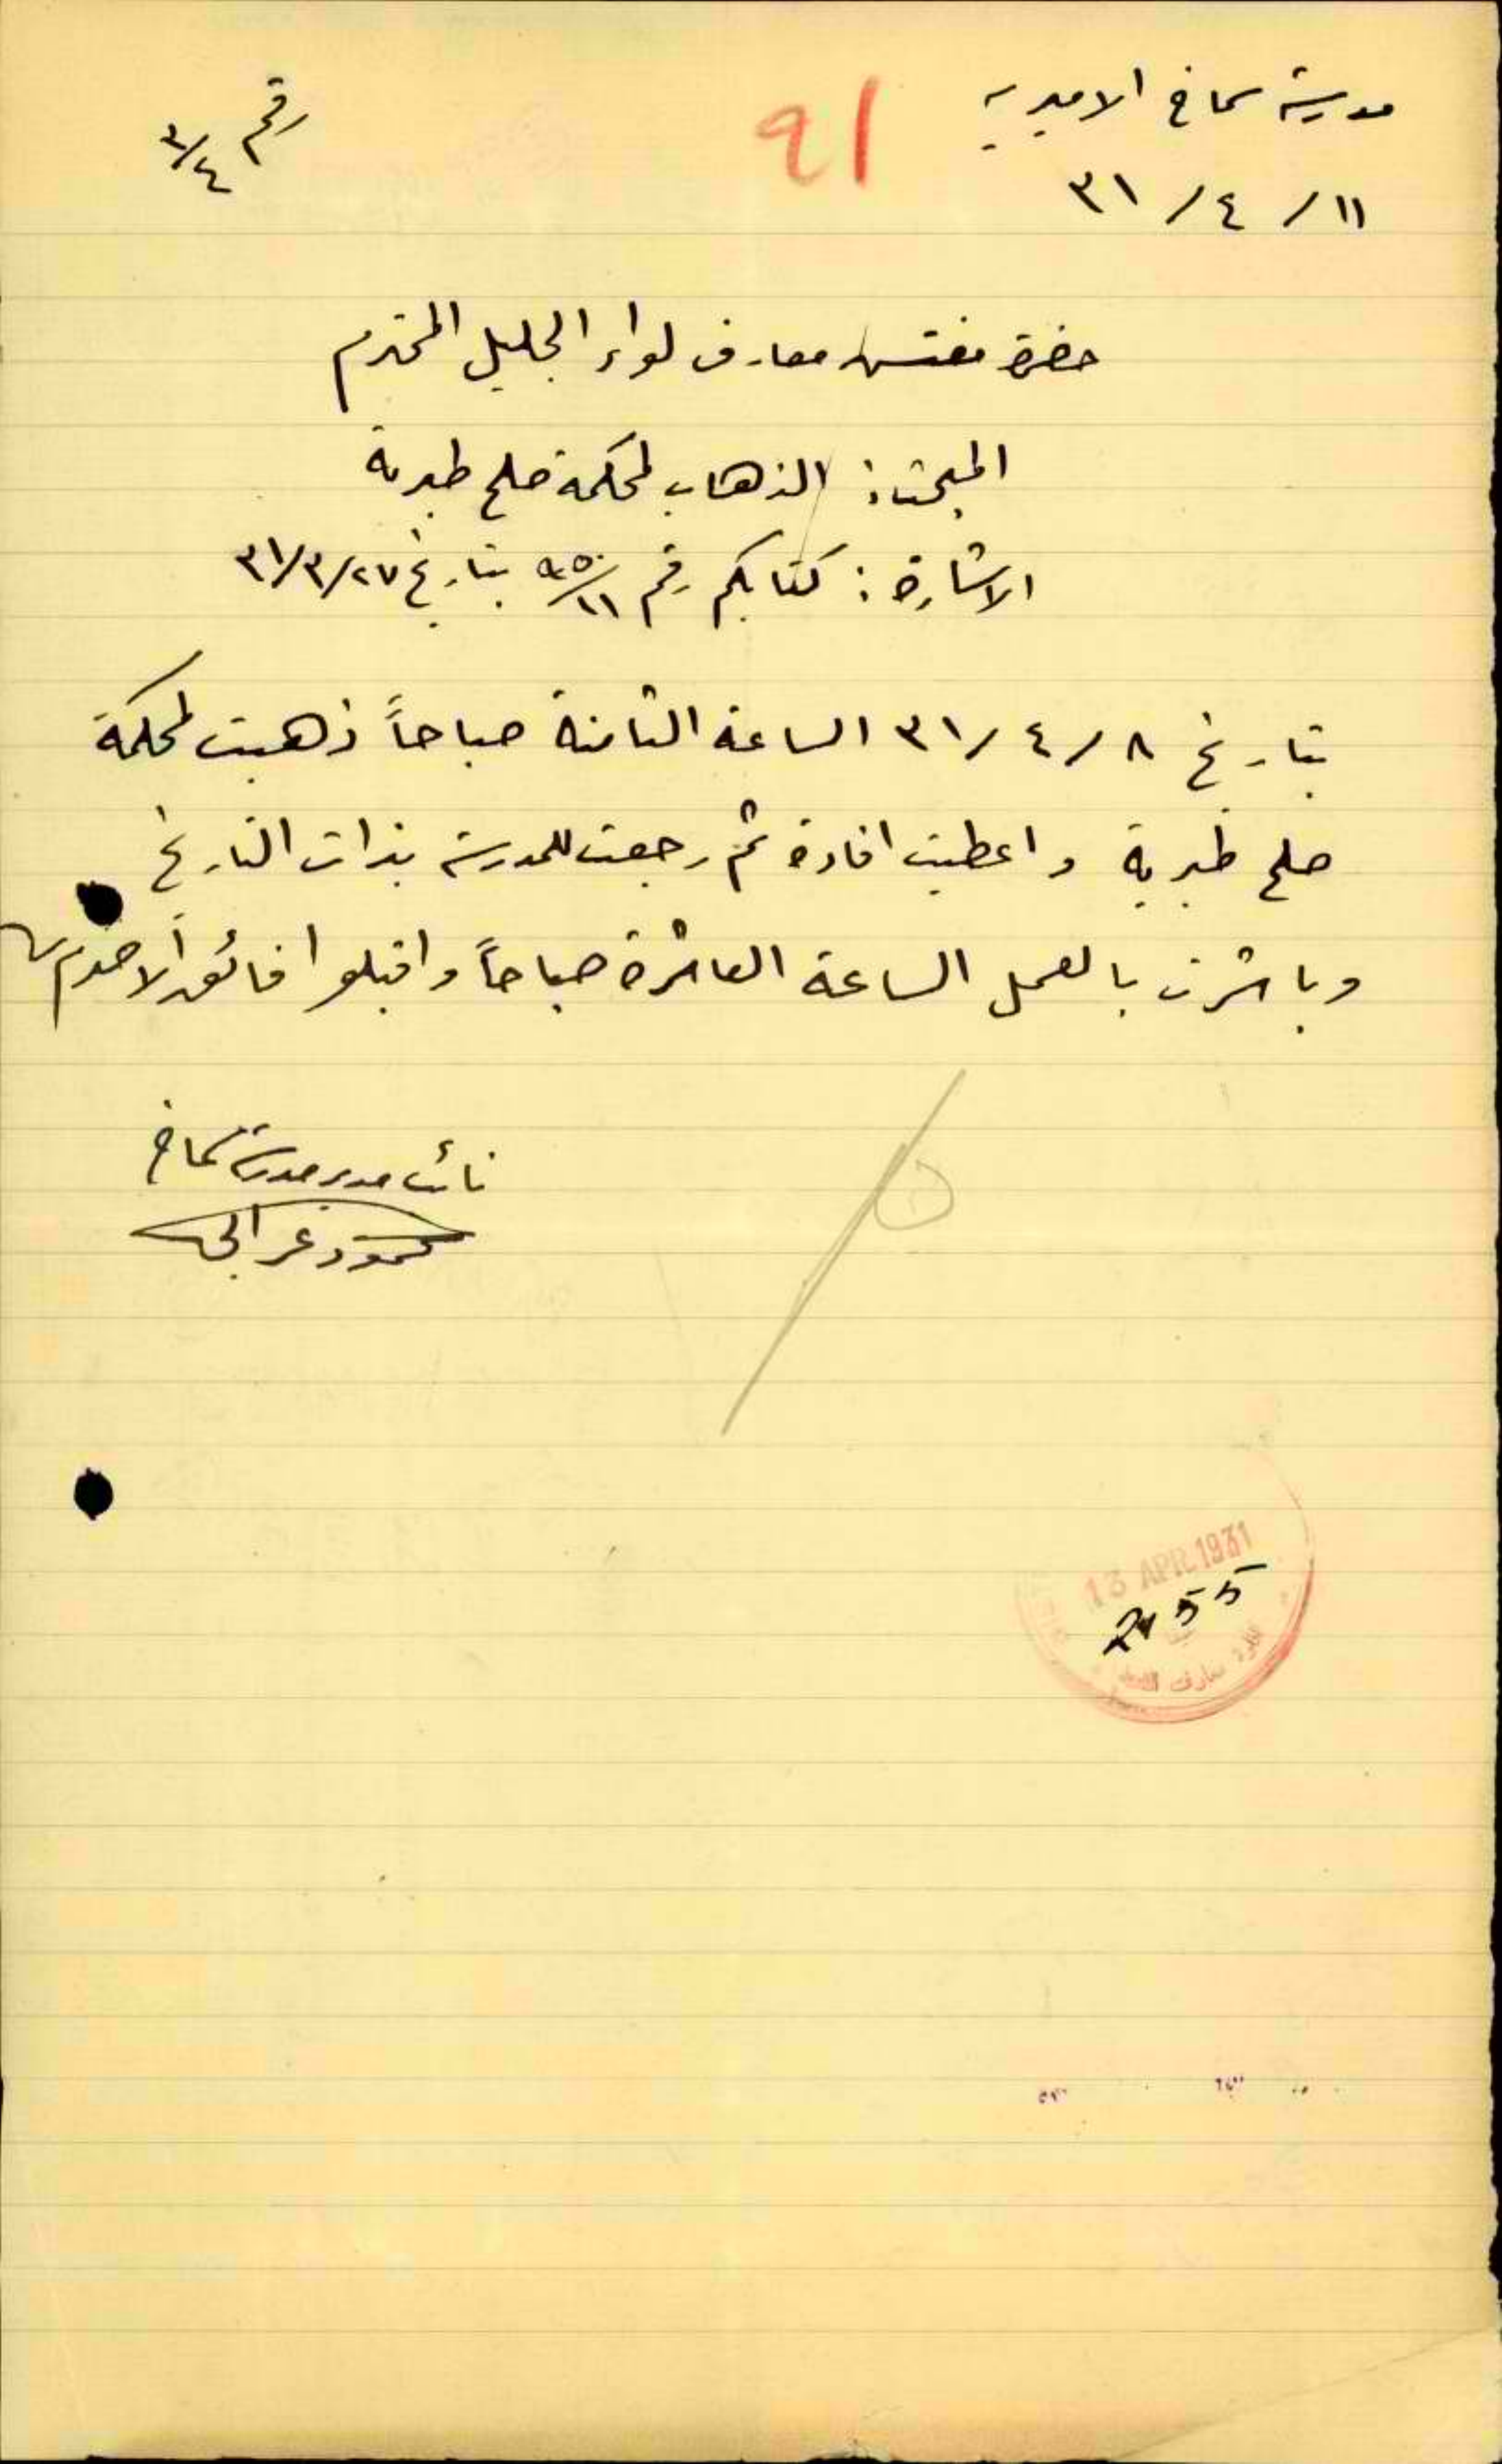 مدرسة سماخ الاميرية
رقم ٣/٤
91
١١/ ٤ / ٣١
حضرة مفتش معارف لواء الجليل المحترم
المبحث: الذهاب لمحكمة صلح طبرية
الاشارة: كتابكم رقم ١١/ بتاريخ ٢٧/٣/٣١
بتاريخ ٨ / ٤ / ٣١ الساعة الثامنة صباحاً ذهبت لمحكمة
صلح طبرية واعطيت افادة ثم رجعت للمدرسة بذات التاريخ
وباشرت بالعمل الساعة العاشرة صباحاً واقبلوا فائق الاحترام
نائب مدير مدرسة سماخ
محمود عرابي
13 APR. 1931
2455
ادارة معارف